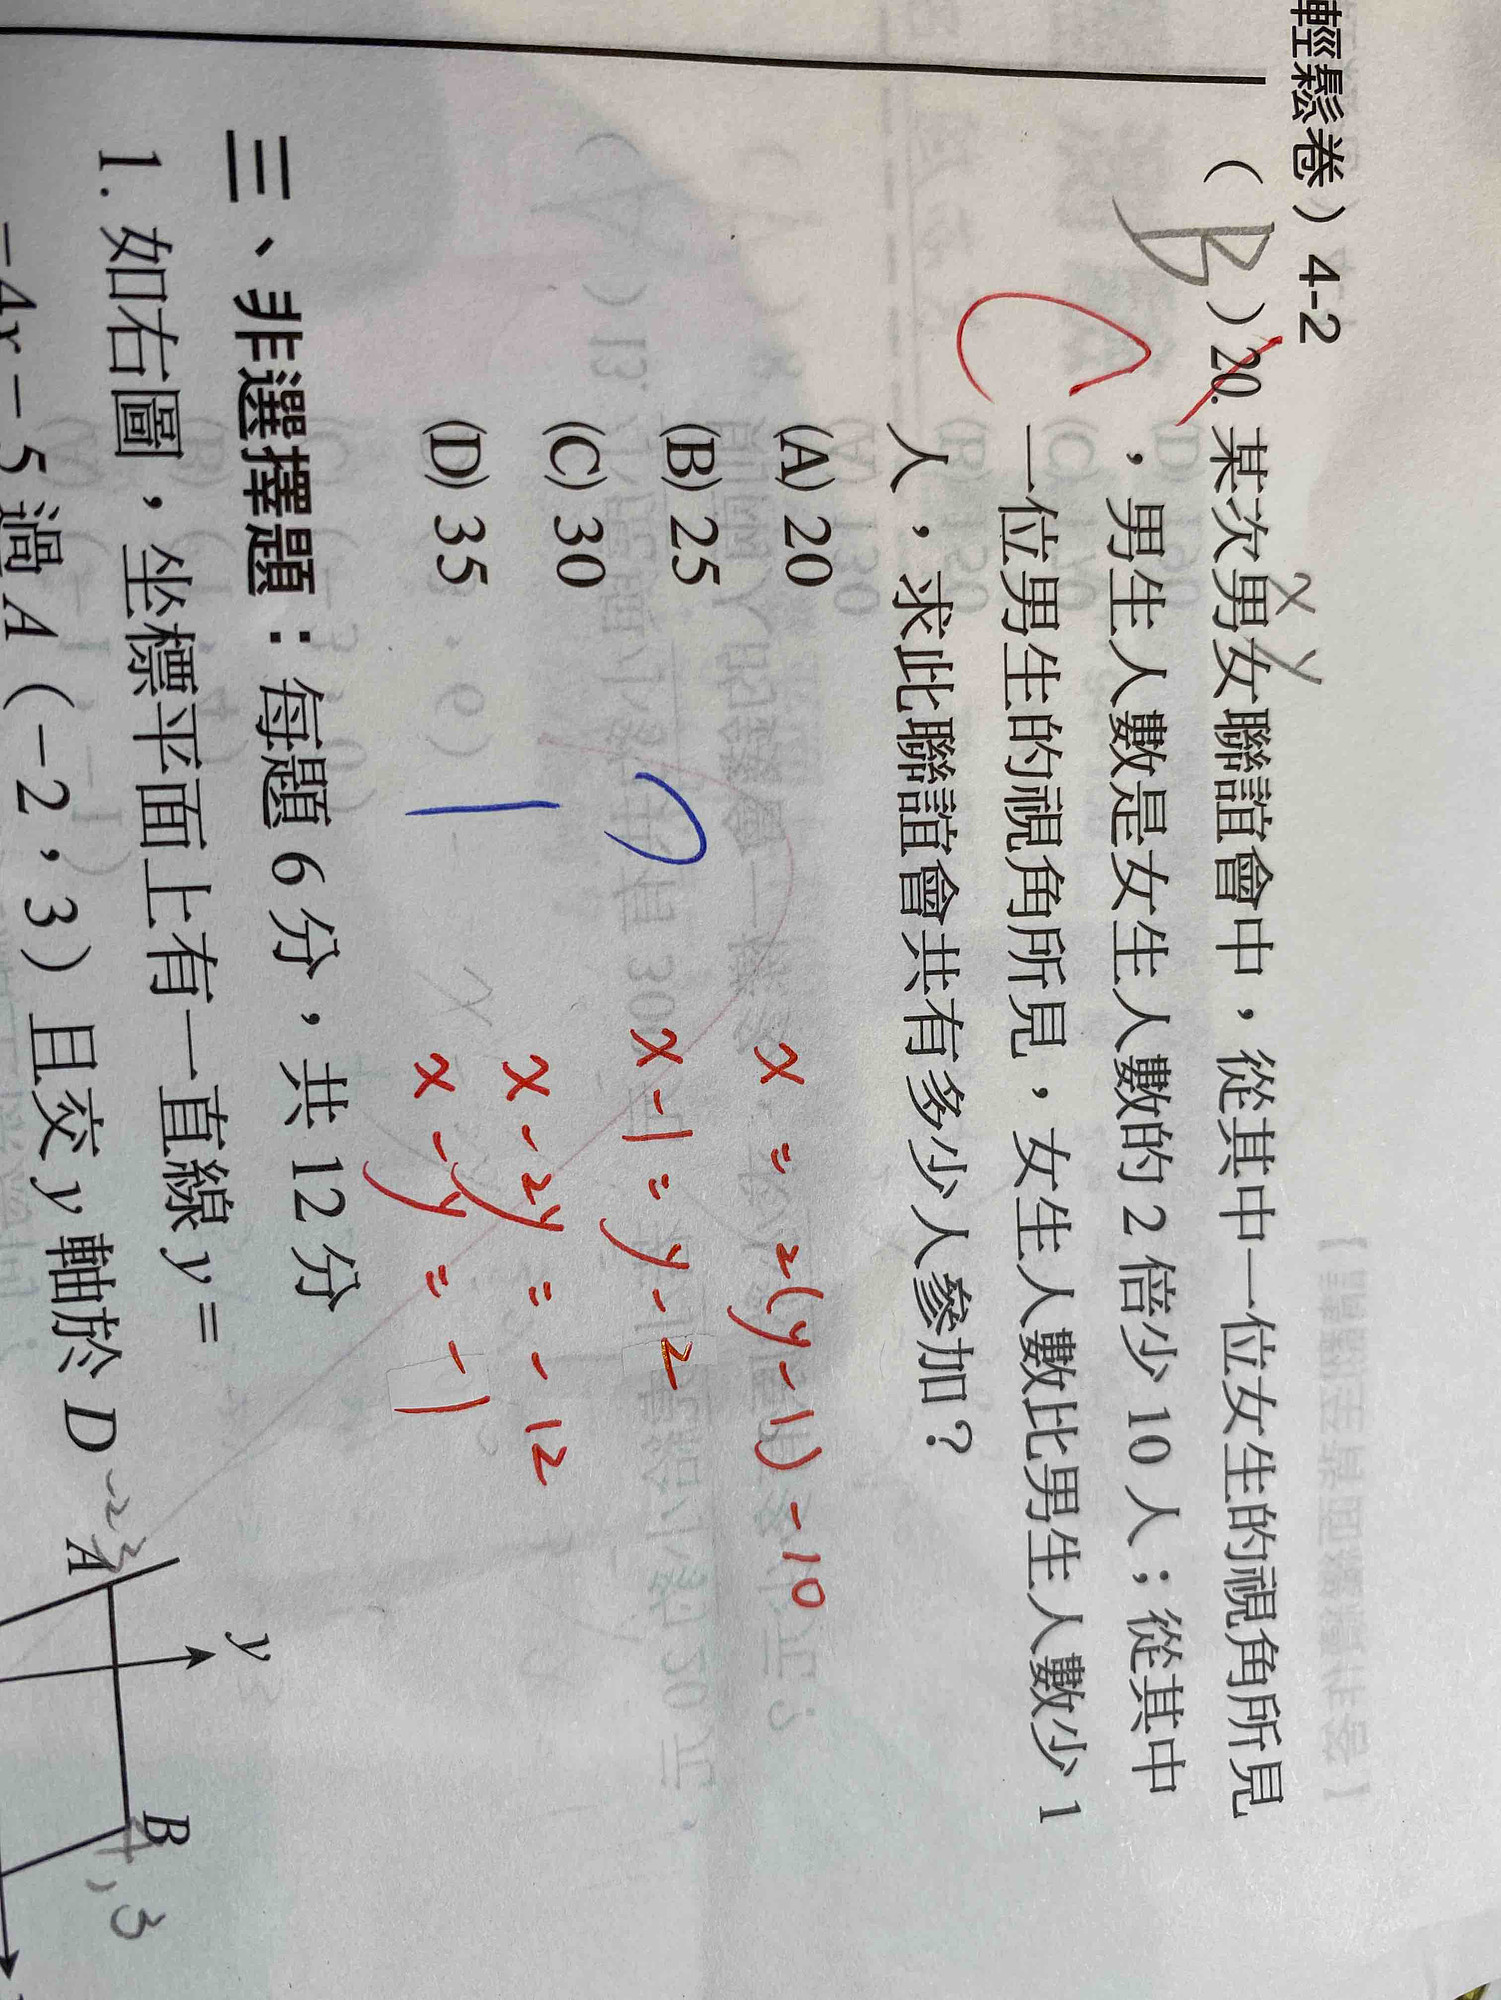 輕鬆卷）4-2
（B）20. 某次男女聯誼會中，從其中一位女生的視角所見
x y
，男生人數是女生人數的 2 倍少 10 人；從其中
C
一位男生的視角所見，女生人數比男生人數少 1
人，求此聯誼會共有多少人參加？
(A) 20
(B) 25
(C) 30
(D) 35
x = 2(y-1)-10
x-1 = y-2
x-2y = -12
x-y = -1
三、非選擇題：每題 6 分，共 12 分
1. 如右圖，坐標平面上有一直線 y =
-4x - 5 過 A（-2，3）且交 y 軸於 D
y
A
B